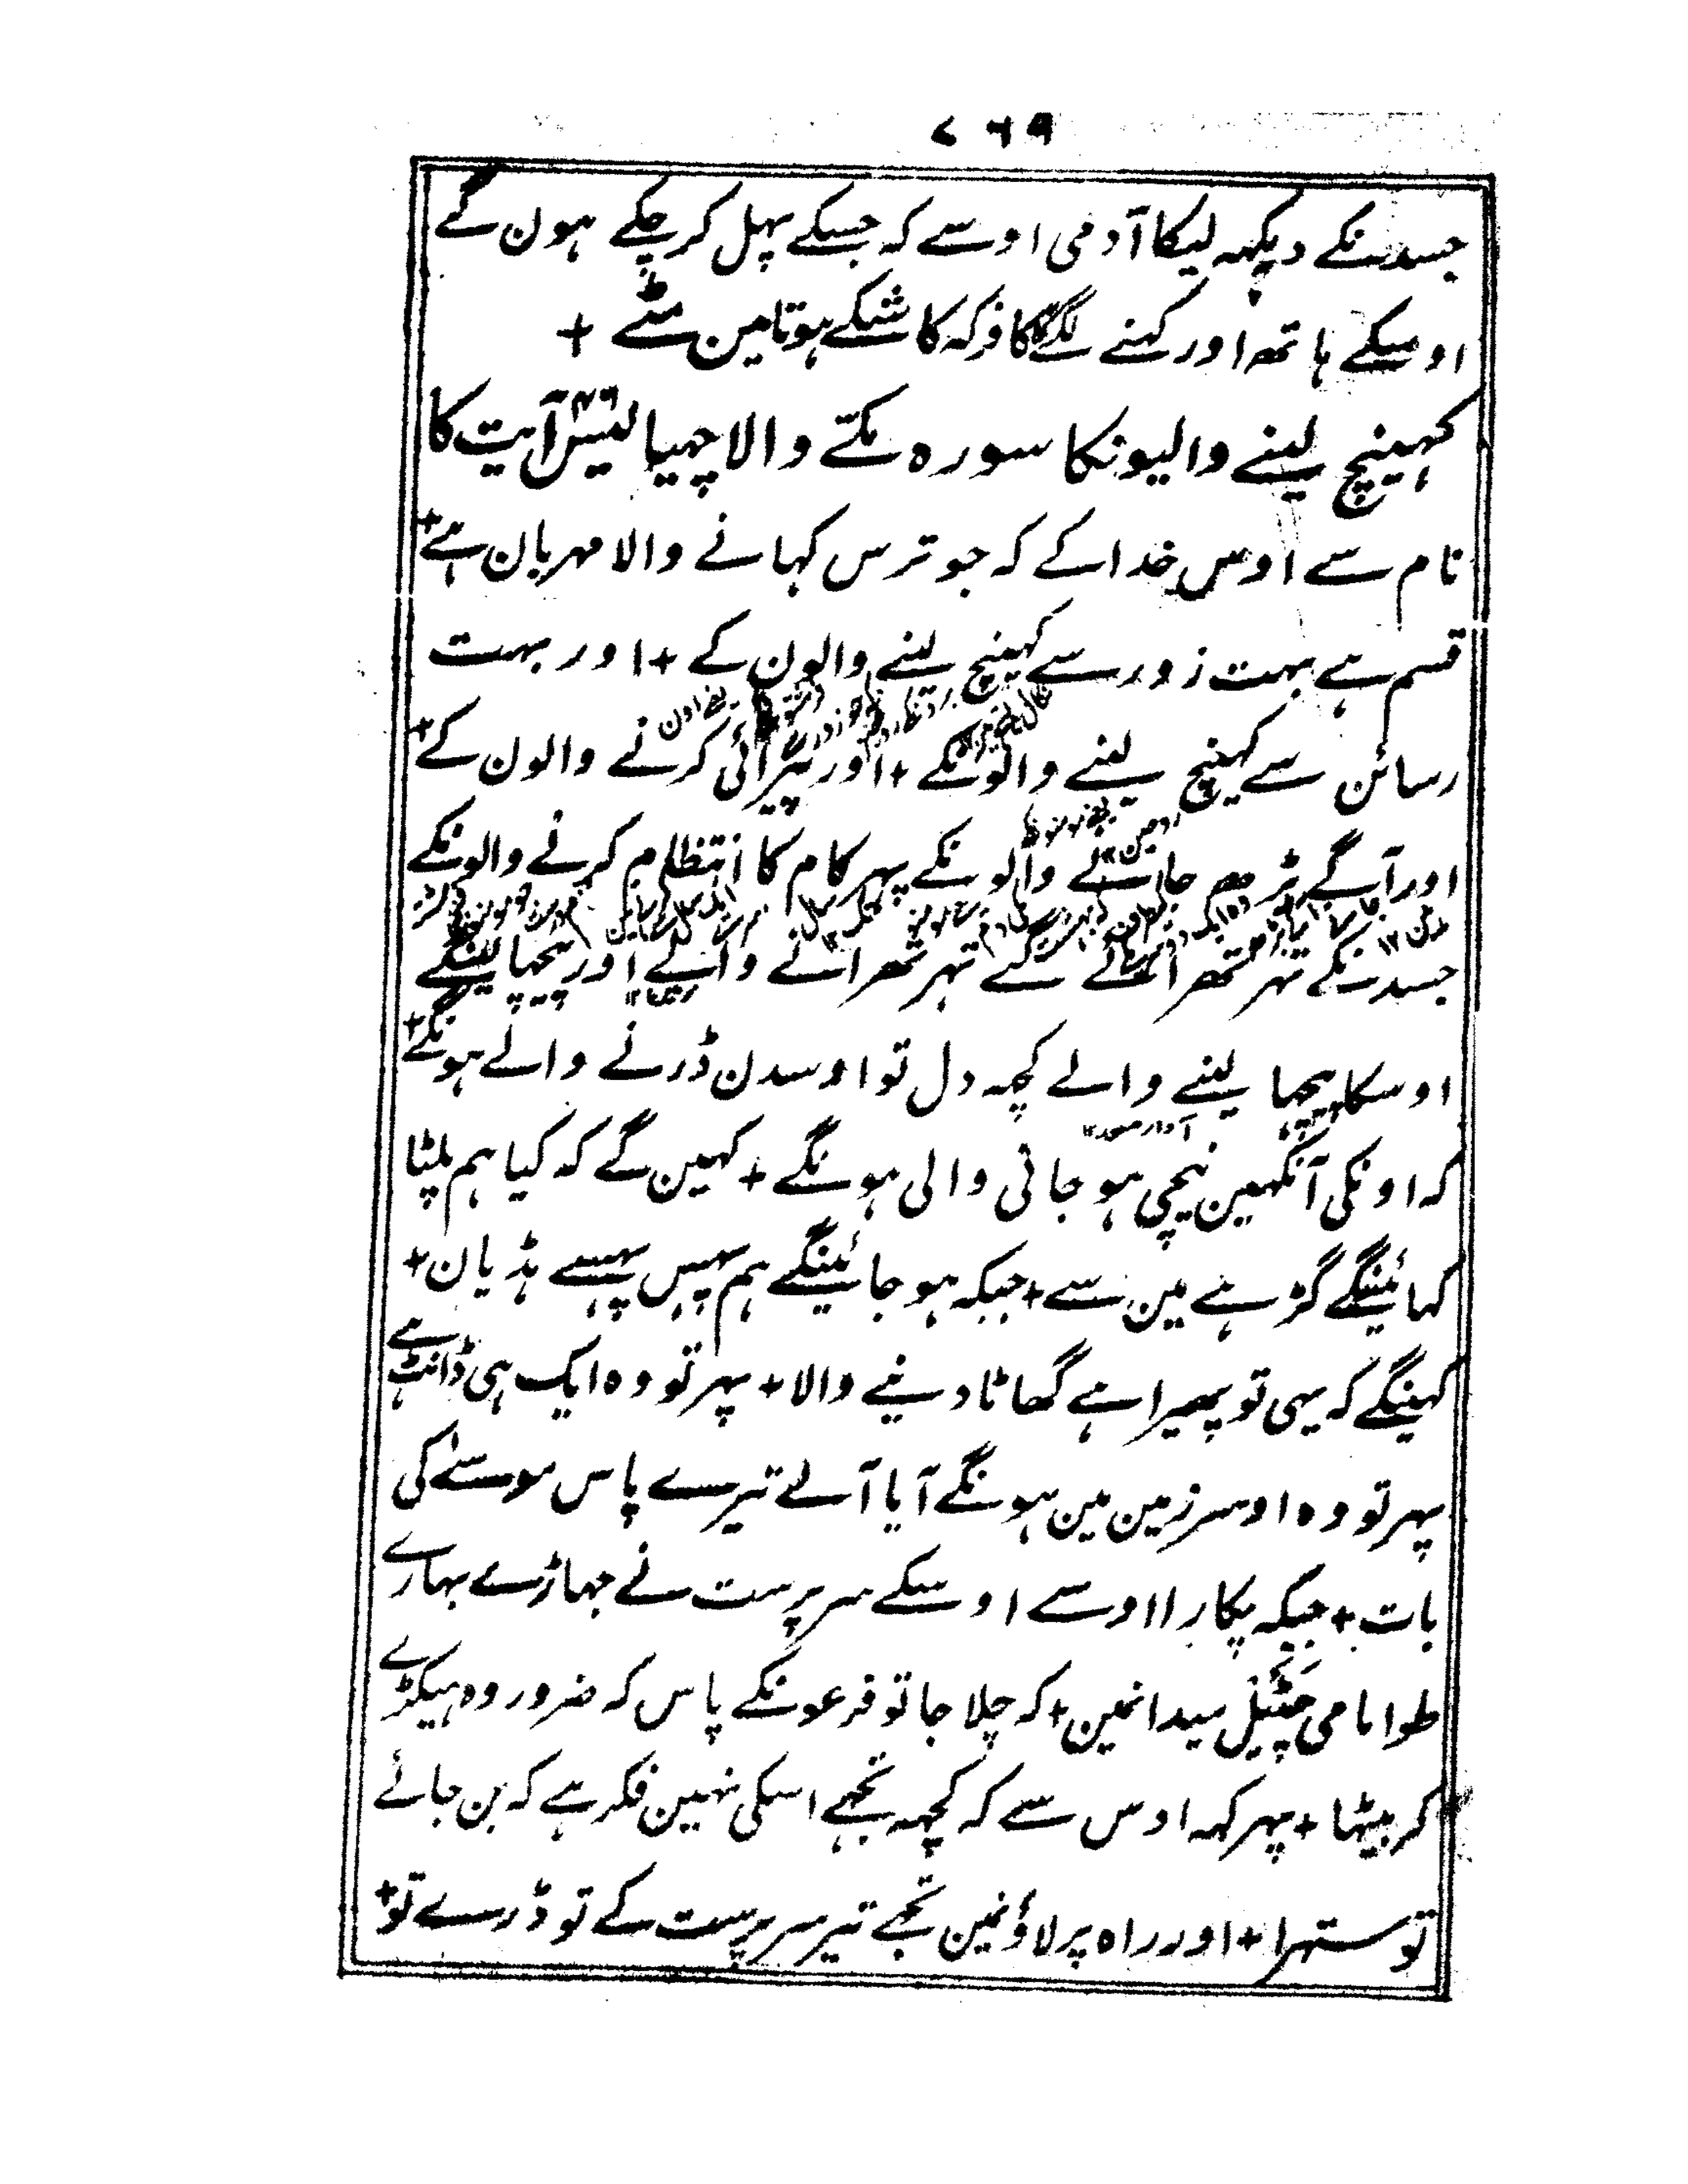 ۷۶۹
جسدنکے دیکہہ لیکا آدمی اوسے کہ جسکے پہل کر چکے ہون گے
اوسکے ہاتھہ اور کہنے لگے گا کافر کہ کاشکے ہوتا مین مٹے +
کہینچ لینے والیونکا سورہ مکّے والا چہیالیس ۴۶ آیت کا
نام سے اوس خدا کے کہ جو ترس کہانے والا مہربان ہے +
قسم ہے بہت زور سے کہینچ لینے والون کے + اور بہت
رسائن سے کہینچ لینے والونکے + اور پیرائی کرنے والون کے +
اور آگے بڑھ جانے والونکے پہر کام کا انتظام کرنے والونکے
جسدنکے تہر تھرائے گے تہر تھرانے والے اور پیچہا لینگے
اوسکا پیچہا لینے والے کچہہ دل تو اوسدن ڈرنے والے ہونگے +
کہ اونکی آنکہین نیچی ہو جانی والی ہونگے + کہین گے کہ کیا ہم پلٹا
کہائینگے گڑہے مین سے + جبکہ ہو جائینگے ہم پہس پہسے ہڈیان +
کہینگے کہ یہی تو پھیرا ہے گھاٹا دینے والا + پہر تو وہ ایک ہی ڈانٹ ہے
پہر تو وہ اوسرزمین مین ہونگے آیا آئے تیرے پاس موسےٰ کی
بات + جبکہ پکارا اوسے اوسکے سرپرست نے جہاڑے بہارے
طوا نامی چٹیل میدانمین + کہ چلا جا تو فرعونکے پاس کہ ضرور وہ ہیکڑے
کر بیٹہا + پہر کہہ اوس سے کہ کچہہ تجہے اسکی نہین فکر ہے کہ بن جائے
تو ستہرا + اور راہ پر لاؤنمین تجہے تیرے سرپرست کے تو ڈرے تو +